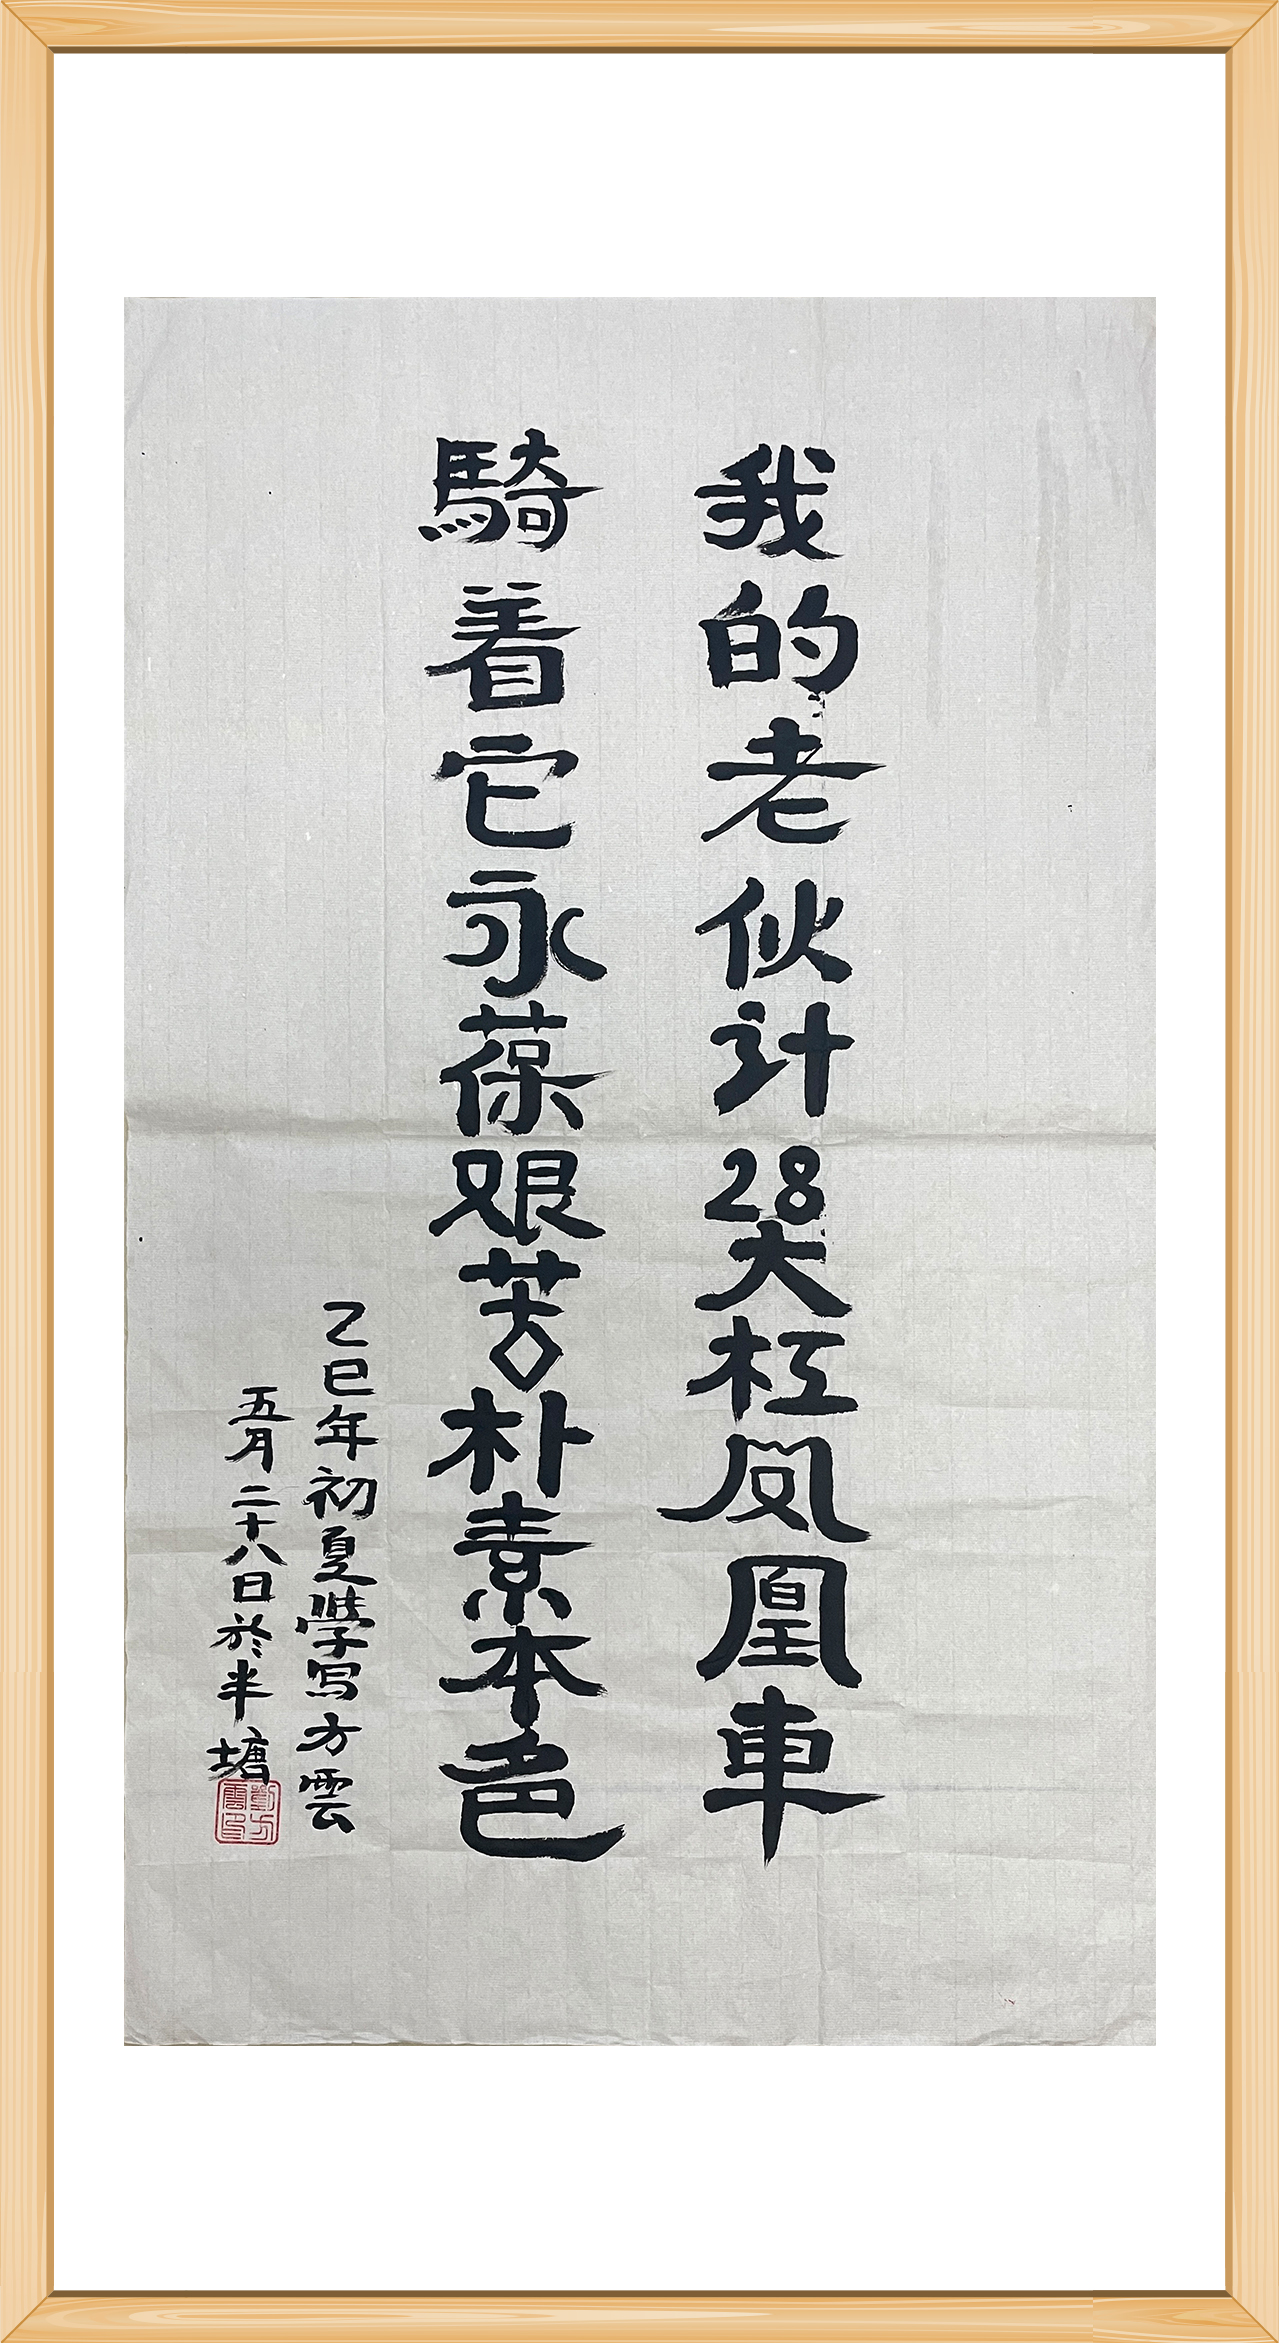 我的老伙计28大杠凤凰車
騎着它永葆艰苦朴素本色
乙巳年初夏學写方雲
五月二十八日於半塘